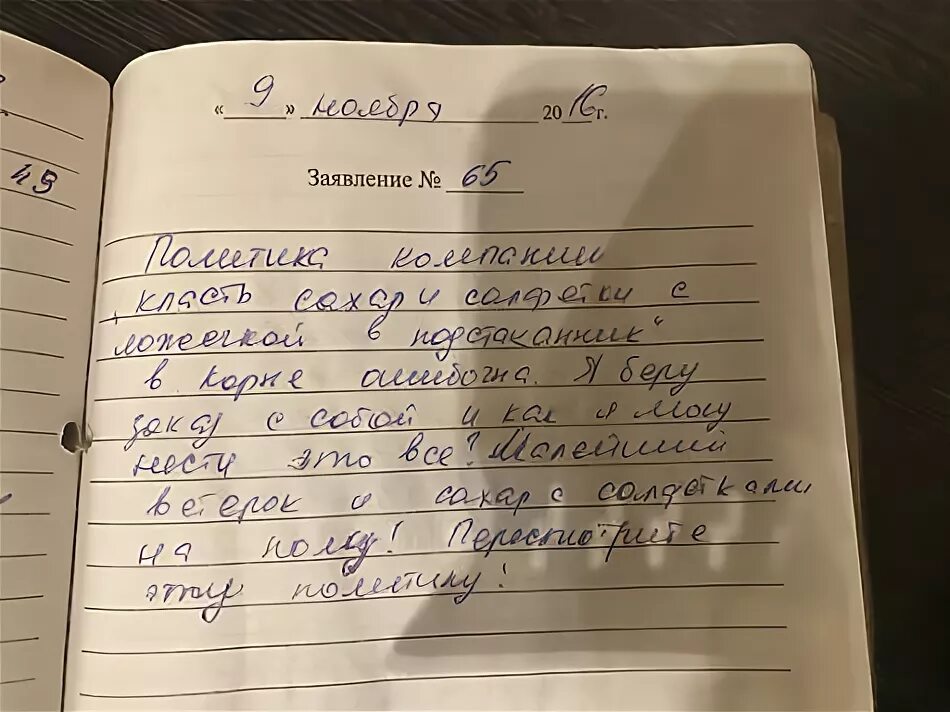 « 9 » ноября 2016 г.
49
Заявление № 65
Политика компании
„класть сахар и салфетки с
ложечкой в подстаканник“
в корне ошибочна. Я беру
заказ с собой и как я могу
нести это все? Малейший
ветерок и сахар с салфетками
на полу! Пересмотрите
эту политику!